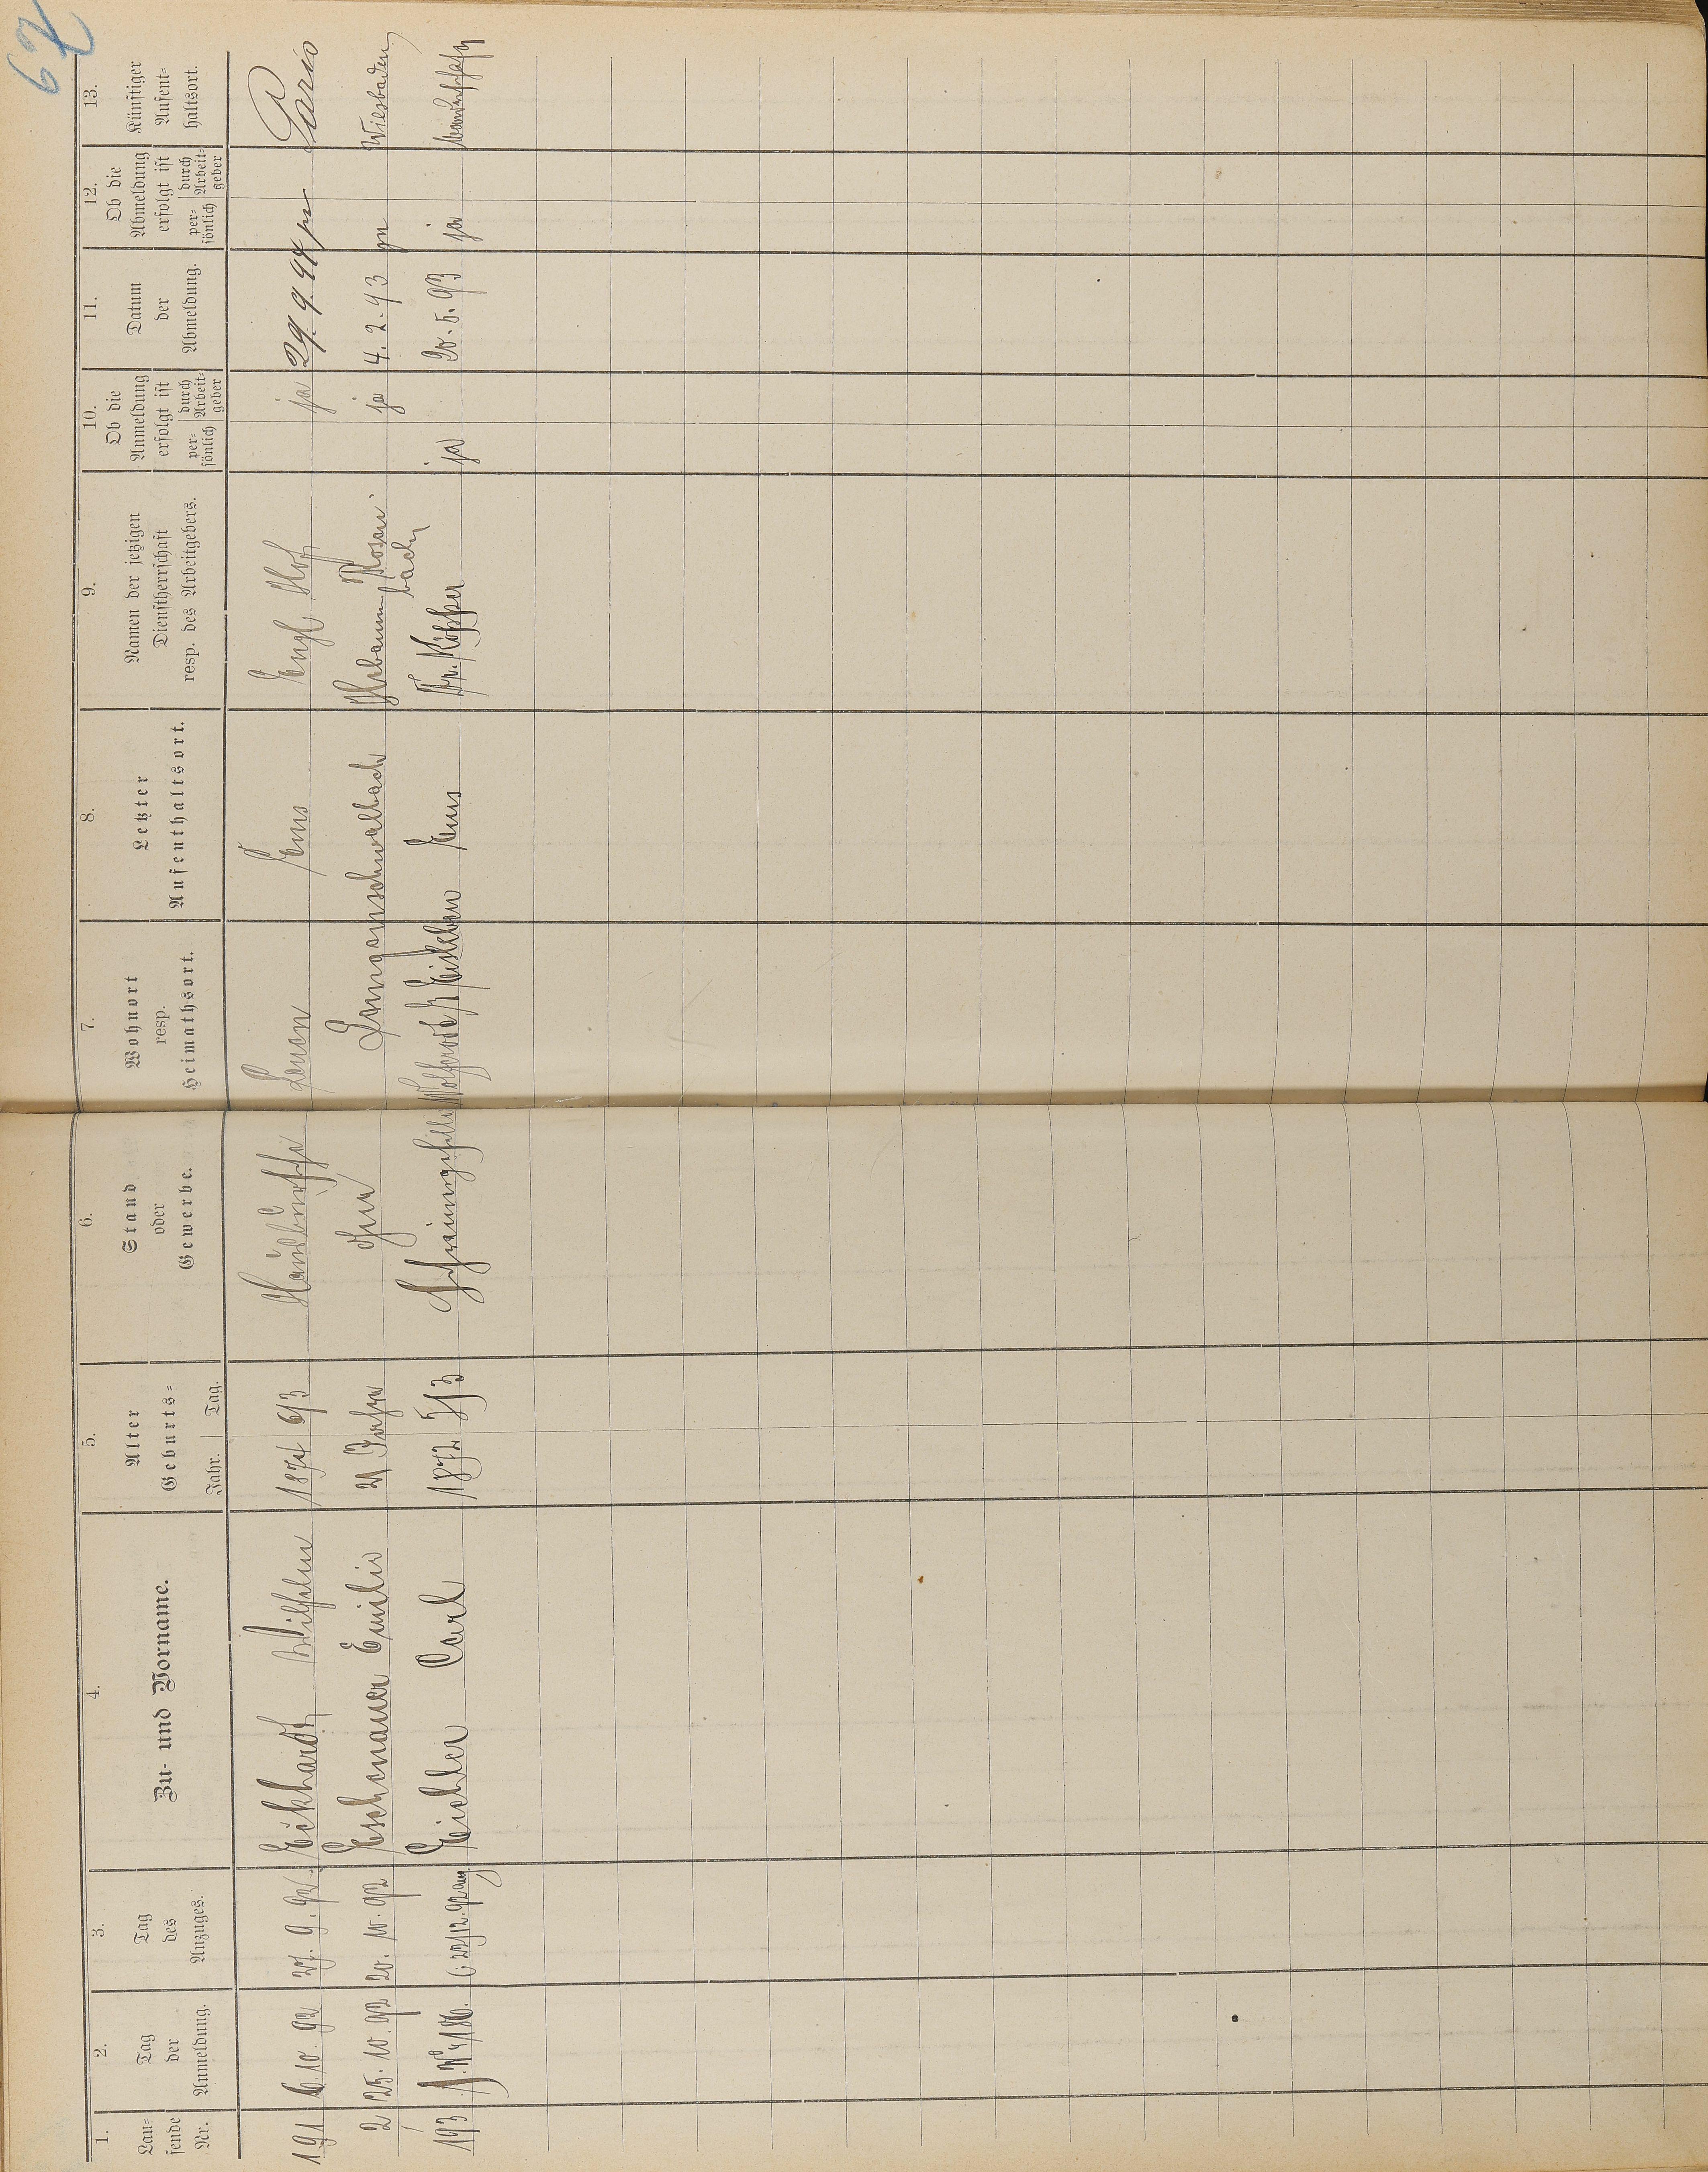 67
1.
Lau-
fende
Nr.
2.
Tag
der
Anmeldung.
3.
Tag
des
Anzuges.
4.
Zu- und Vorname.
5.
Alter
Geburts-
Jahr. Tag.
6.
Stand
oder
Gewerbe.
7.
Wohnort
resp.
Heimathsort.
8.
Letzter
Aufenthaltsort.
9.
Namen der jetzigen
Dienstherrschaft
resp. des Arbeitgebers.
10.
Ob die
Anmeldung
erfolgt ist
per- durch
sönlich Arbeit-
geber
11.
Datum
der
Abmeldung.
12.
Ob die
Abmeldung
erfolgt ist
per- durch
sönlich Arbeit-
geber
13.
Künftiger
Aufent-
haltsort.
191 6.10.92 27.9.92. Eckhardt Wilhelm 1874 6/3 Hausbursche Ems Engl Hof ja 29.9.94 Paris
2 25.10.92 20.10.92 Eschenauer Emilie 21 Jahre Langenschwalbach Rosen-
bach ja 4.2.93 Wiesbaden
193 22/12.92 Eichler Carl 1872 5/3 Eisleben Ems Fr. ja 20.5.93 ja